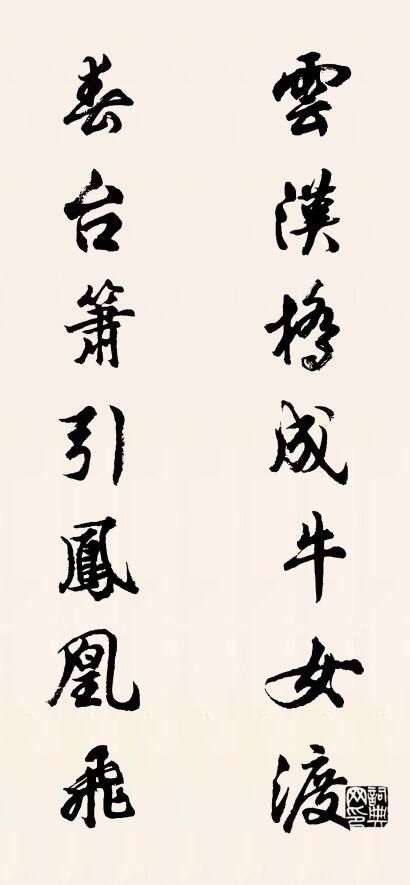 雲漢橋成牛女渡
春台簫引鳳凰飛
詞典網印